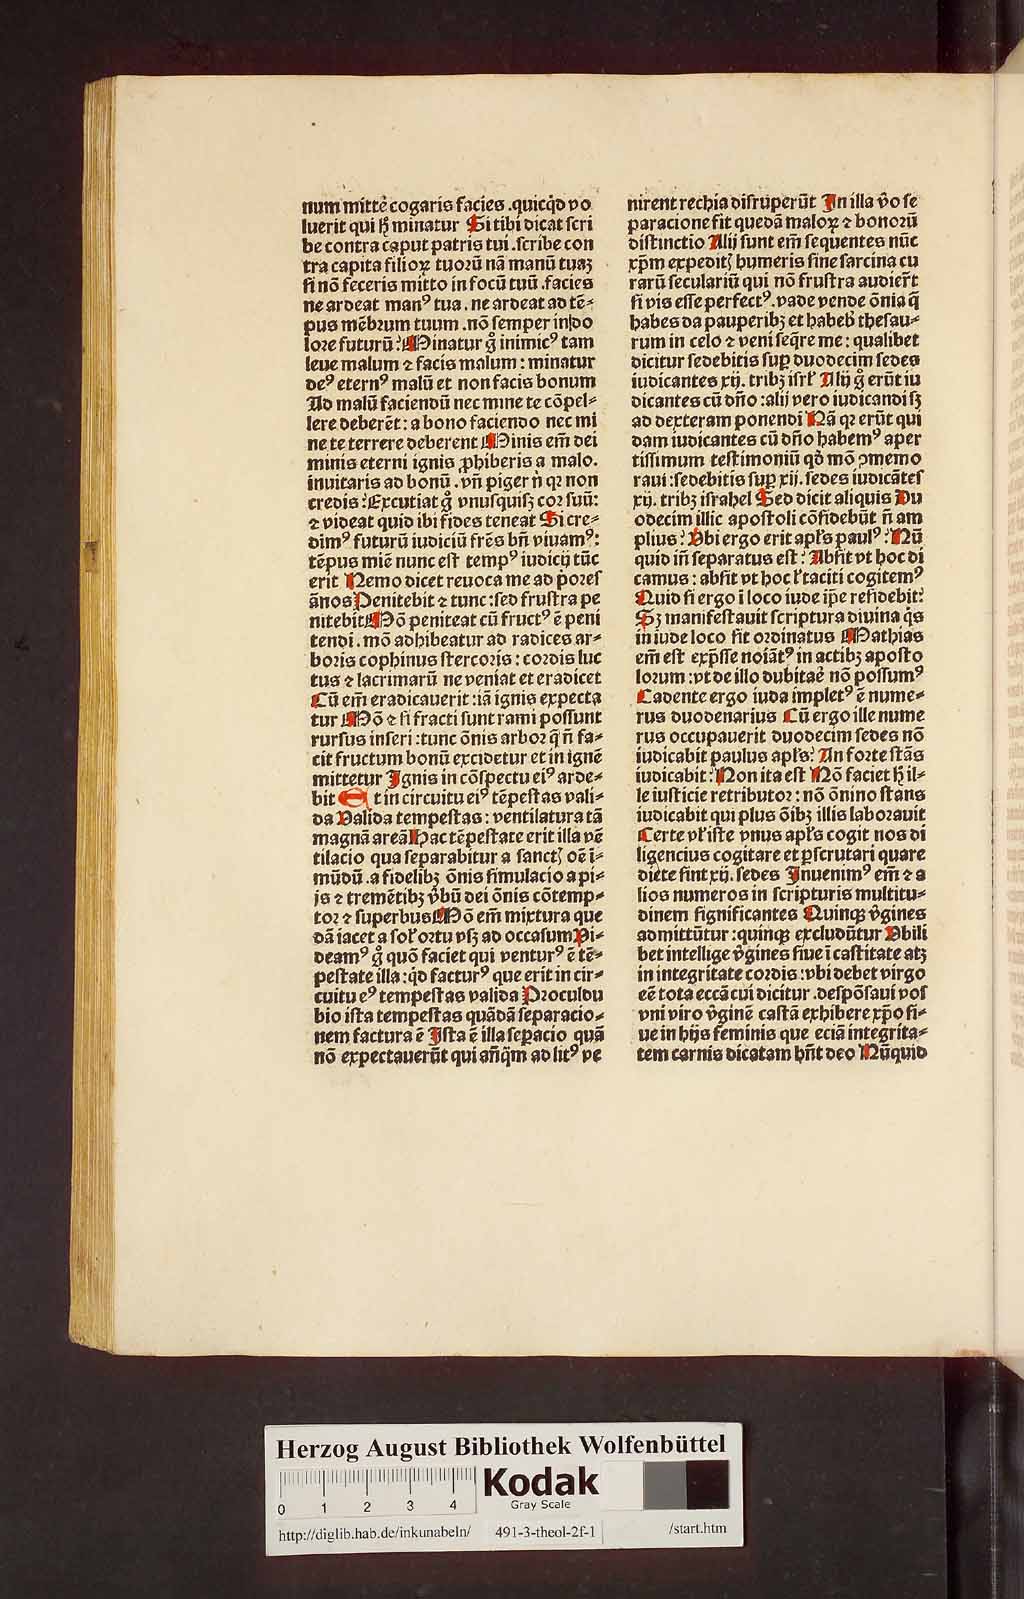 num mittẽ cogaris facies .quicq̃d vo
luerit qui hͦ minatur Si tibi dicat scri
be contra caput patris tui .scribe con
tra capita filioꝝ tuoꝝ nã manũ tuaʒ
si nõ feceris mitto in focũ tuũ .facies
ne ardeat manꝰ tua .ne ardeat ad tẽ⸗
pus mẽbrum tuum .nõ semper in do
lore futurũ? Minatur gͦ inimicꝰ tam
leue malum ⁊ facis malum : minatur
deꝰ eternꝰ malũ et non facis bonum
Ad malũ faciendũ nec mine te cõpel⸗
lere deberẽt : a bono faciendo nec mi
ne te terrere deberent Minis em̃ dei
minis eterni ignis ꝓhiberis a malo.
inuitaris ad bonũ .vñ piger ñ qꝛ non
credis? Excutiat gͦ vnusquisqʒ cor suũ:
⁊ videat quid ibi fides teneat Si cre⸗
dimꝰ futurũ iudiciũ frẽs bñ viuamꝰ:
tẽpus mie nunc est tempꝰ iudicij tũc
erit Nemo dicet reuoca me ad p̃ores
ãnos Penitebit ⁊ tunc : sed frustra pe
nitebit Mõ peniteat cũ fructꝰ ẽ peni
tendi .mõ adhibeatur ad radices ar⸗
boris cophinus stercoris : cordis luc
tus ⁊ lacrimarũ ne veniat et eradicet
Cũ em̃ eradicauerit : iã ignis expecta
tur Mõ ⁊ si fracti sunt rami possunt
rursus inseri : tunc õnis arbor q̃ ñ fa⸗
cit fructum bonũ excidetur et in ignẽ
mittetur Ignis in cõspectu eiꝰ arde⸗
bit Et in circuitu eiꝰ tẽpestas vali⸗
da Valida tempestas : ventilatura tã
magnã areã Hac tẽpestate erit illa vẽ
tilacio qua separabitur a sanct} oẽ ĩ⸗
mũdũ .a fidelibʒ õnis simulacio a pi⸗
js ⁊ tremẽtibʒ v̾bũ dei õnis cõtemp⸗
tor ⁊ superbus Mõ em̃ mixtura que
dã iacet a sol̾ ortu vsqʒ ad occasum Vi⸗
deamꝰ gͦ quõ faciet qui venturꝰ ẽ tẽ⸗
pestate illa : q̃d facturꝰ que erit in cir⸗
cuitu eꝰ tempestas valida Proculdu
bio ista tempestas quãdã separacio⸗
nem factura ẽ Ista ẽ illa sep̱acio quã
nõ expectauerũt qui añq̃m ad litꝰ ve
nirent rechia disruperũt In illa v̾o se
paracione fit quedã maloꝝ ⁊ bonorũ
distinctio Alij sunt em̃ sequentes nũc
xp̃m expedit} humeris sine sarcina cu
rarũ seculariũ qui nõ frustra audier̃t
si vis esse perfectꝰ .vade vende õnia q̃
habes da pauperibʒ et habeb̾ thesau⸗
rum in celo ⁊ veni seq̃re me : qualibet
dicitur sedebitis sup̱ duodecim sedes
iudicantes xij. tribʒ isrł Alij gͦ erũt iu
dicantes cũ dño : alij vero iudicandi sʒ
ad dexteram ponendi Nã qꝛ erũt qui
dam iudicantes cũ dño habemꝰ aper
tissimum testimoniũ qd̾ mõ ꝯmemo
raui : sedebitis sup̱ xij. sedes iudicãtes
xij. tribʒ israhel Sed dicit aliquis Du
odecim illic apostoli cõsidebũt ñ am
plius? Vbi ergo erit apł̃s paulꝰ? Nũ
quid iñ separatus est? Absit vt hoc di
camus : absit vt hoc ł taciti cogitemꝰ
Quid si ergo ĩ loco iude ip̃e residebit?
Sʒ manifestauit scriptura diuina q̃s
in iude loco sit ordinatus Mathias
em̃ est exp̃sse noĩatꝰ in actibʒ aposto
lorum : vt de illo dubitaẽ nõ possumꝰ
Cadente ergo iuda impletꝰ ẽ nume⸗
rus duodenarius Cũ ergo ille nume
rus occupauerit duodecim sedes nõ
iudicabit paulus apł̃s? An forte stãs
iudicabit? Non ita est Nõ faciet hͦ il⸗
le iusticie retributor : nõ õnino stans
iudicabit qui plus õibʒ illis laborauit
Certe vł iste vnus apł̃s cogit nos di
ligencius cogitare et p̱scrutari quare
dicte sint xij. sedes Inuenimꝰ em̃ ⁊ a
lios numeros in scripturis multitu⸗
dinem significantes Quinqʒ v̾gines
admittũtur : quinqʒ excludũtur Vbili
bet intellige v̾gines siue ĩ castitate atqʒ
in integritate cordis : vbi debet virgo
eẽ tota ecc̃a cui dicitur .despõsaui vos
vni viro v̾ginẽ castã exhibere xp̃o si⸗
ue in hijs feminis que eciã integrita⸗
tem carnis dicatam hñt deo Nũquid
Herzog August Bibliothek Wolfenbüttel
0 1 2 3 4
Kodak
Gray Scale
http://diglib.hab.de/inkunabeln/ 491-3-theol-2f-1 /start.htm